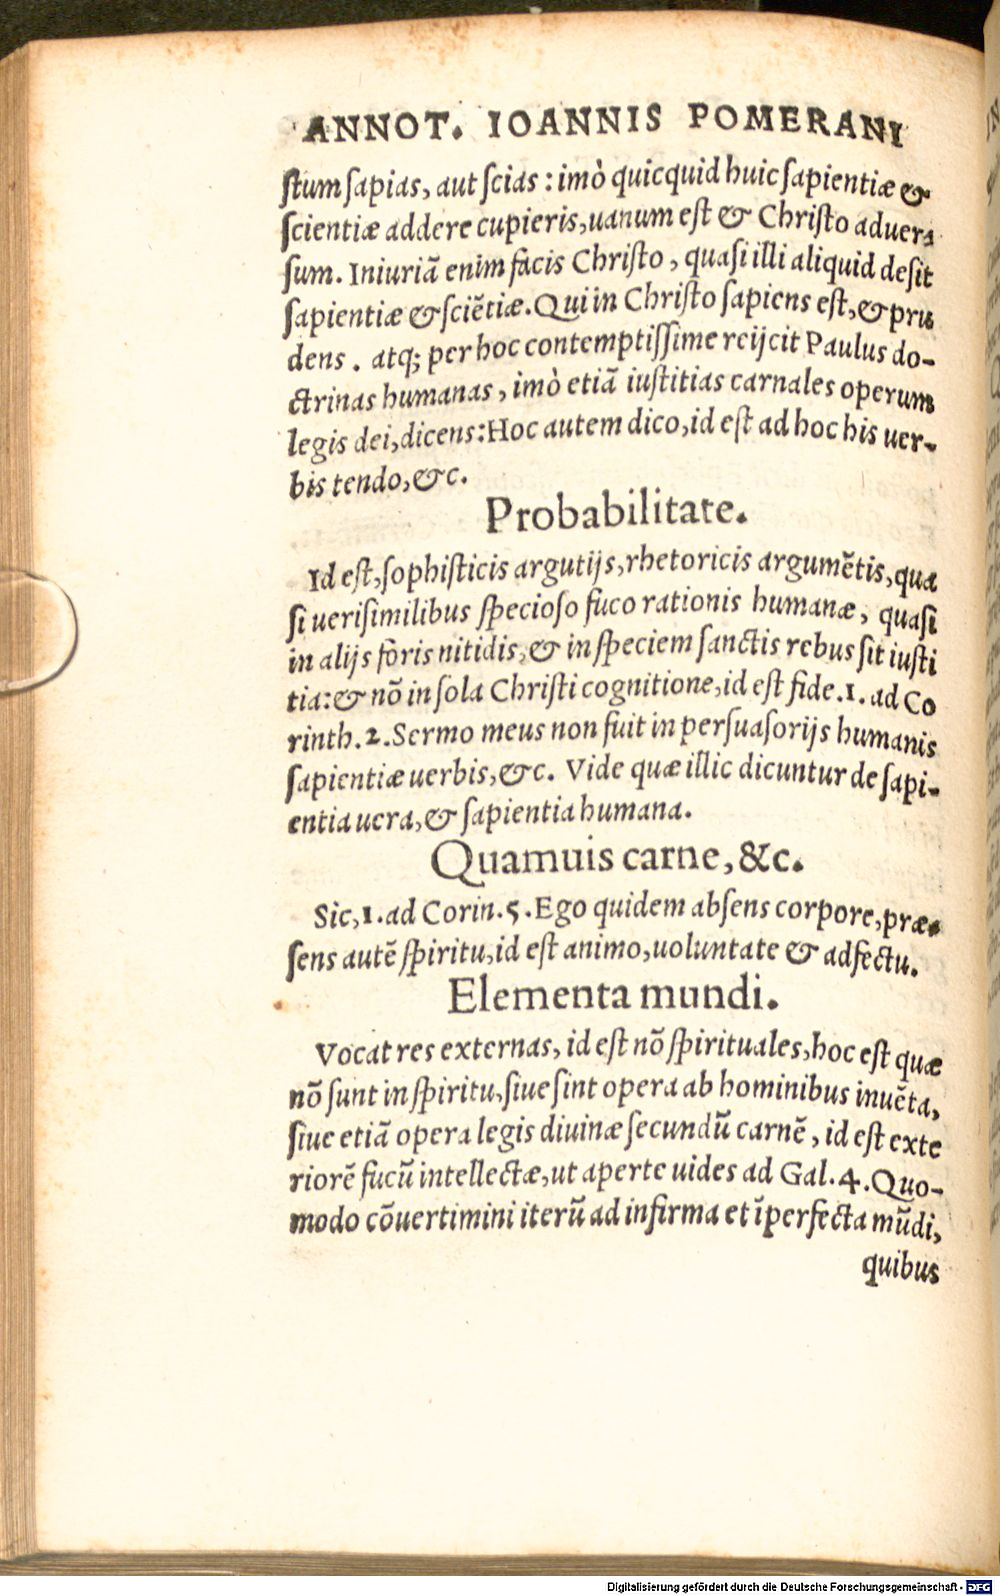 ANNOT. IOANNIS POMERANI
ſtum ſapias, aut ſcias : imò quicquid huic ſapientiæ &
ſcientiæ addere cupieris, uanum eſt & Chriſto aduer⸗
ſum. Iniuriã enim facis Chriſto, quaſi illi aliquid deſit
ſapientiæ & ſciẽtiæ. Qui in Chriſto ſapiens eſt, & pru
dens. atq; per hoc contemptiſſime reijcit Paulus do-
ctrinas humanas, imò etiã iuſtitias carnales operum
legis dei, dicens: Hoc autem dico, id eſt ad hoc his uer-
bis tendo, &c.
Probabilitate.
Id eſt, ſophiſticis argutijs, rhetoricis argumẽtis, qua
ſi ueriſimilibus ſpecioſo fuco rationis humanæ, quaſi
in alijs foris nitidis, & in ſpeciem ſanctis rebus ſit iuſti
tia: & nõ in ſola Chriſti cognitione, id eſt fide. 1. ad Co
rinth. 2. Sermo meus non fuit in perſuaſorijs humanis
ſapientiæ uerbis, &c. Vide quæ illic dicuntur de ſapi-
entia uera, & ſapientia humana.
Quamuis carne, &c.
Sic, 1. ad Corin. 5. Ego quidem abſens corpore, præ⸗
ſens autẽ ſpiritu, id eſt animo, uoluntate & adfectu.
Elementa mundi.
Vocat res externas, id eſt nõ ſpirituales, hoc eſt quæ
nõ ſunt in ſpiritu, ſiue ſint opera ab hominibus inuẽta,
ſiue etiã opera legis diuinæ ſecundũ carnẽ, id eſt exte
riorẽ fucũ intellectæ, ut aperte uides ad Gal. 4. Quo-
modo cõuertimini iterũ ad infirma et ĩperfecta mũdi,
quibus
Digitalisierung gefördert durch die Deutsche Forschungsgemeinschaft - DFG